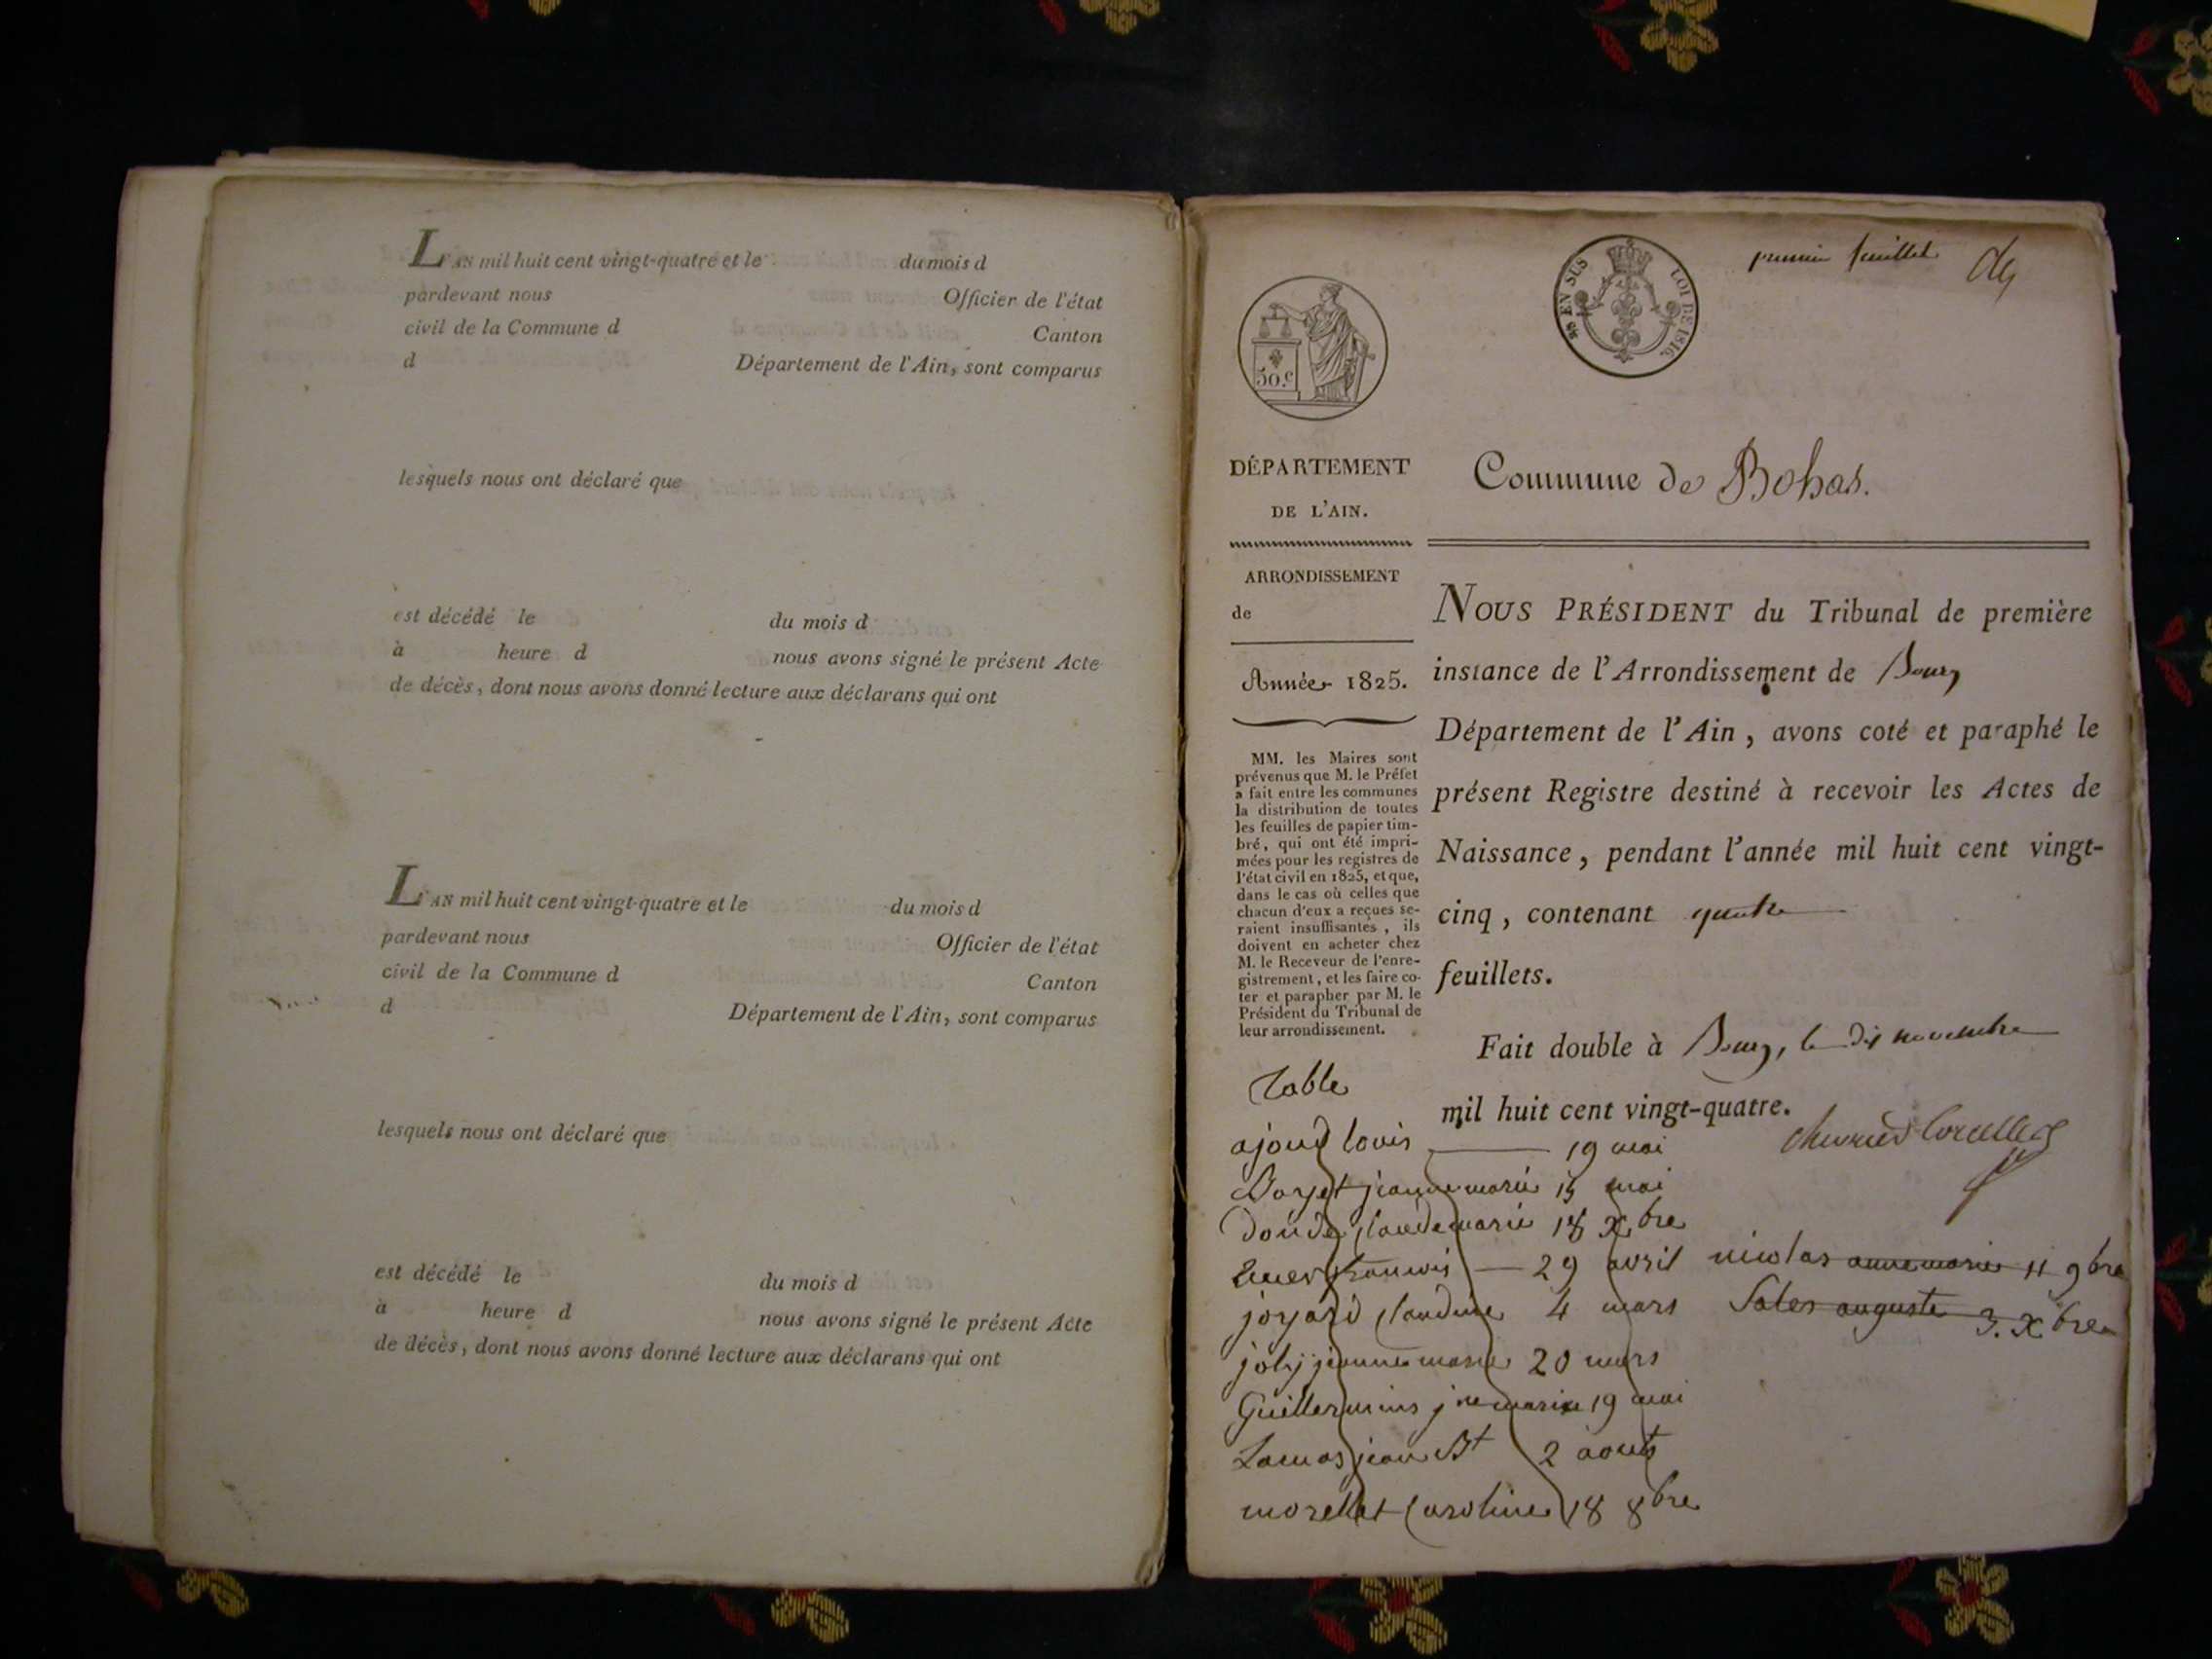 L'AN mil huit cent vingt-quatre et le du mois d
pardevant nous Officier de l'état
civil de la Commune d Canton
d Département de l'Ain, sont comparus
lesquels nous ont déclaré que
est décédé le du mois d
à heure d nous avons signé le présent Acte
de décès, dont nous avons donné lecture aux déclarans qui ont
L'AN mil huit cent vingt-quatre et le du mois d
pardevant nous Officier de l'état
civil de la Commune d Canton
d Département de l'Ain, sont comparus
lesquels nous ont déclaré que
est décédé le du mois d
à heure d nous avons signé le présent Acte
de décès, dont nous avons donné lecture aux déclarans qui ont
premier feuillet
EN SUS LOI DE 1816.
50.c
DÉPARTEMENT
DE L'AIN.
ARRONDISSEMENT
de
Année 1825.
MM. les Maires sont
prévenus que M. le Préfet
a fait entre les communes
la distribution de toutes
les feuilles de papier tim-
bré, qui ont été impri-
mées pour les registres de
l'état civil en 1825, et que,
dans le cas où celles que
chacun d'eux a reçues se-
raient insuffisantes, ils
doivent en acheter chez
M. le Receveur de l'enre-
gistrement, et les faire co-
ter et parapher par M. le
Président du Tribunal de
leur arrondissement.
Commune de Bohas.
NOUS PRÉSIDENT du Tribunal de première
instance de l'Arrondissement de Bourg
Département de l'Ain, avons coté et paraphé le
présent Registre destiné à recevoir les Actes de
Naissance, pendant l'année mil huit cent vingt-
cinq, contenant quatre
feuillets.
Fait double à Bourg, le dix novembre
mil huit cent vingt-quatre.
Table
ajoud louis 19 mai
jeanne marie 15 mai
claude marie 18 Xbre
françois 29 avril
joyard claudine 4 mars
joly jeanne marie 20 mars
Guillermins jne marie 19 mai
Lamas jean Bt 2 aout
morellet Caroline 18 8bre
nicolas anne marie 11 9bre
Sales auguste 3. Xbre